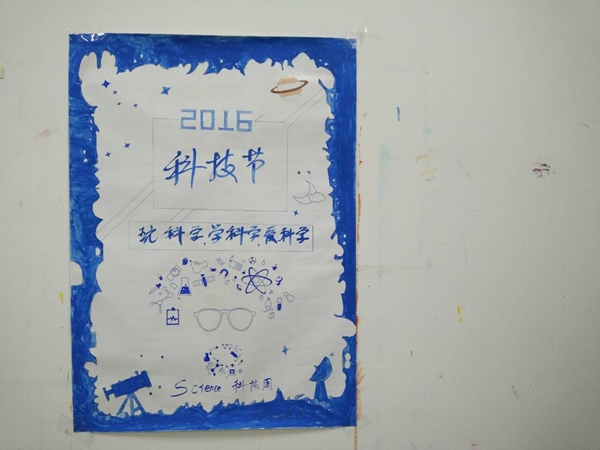 2016
科技节
玩科学、学科学、爱科学
Science 科技周